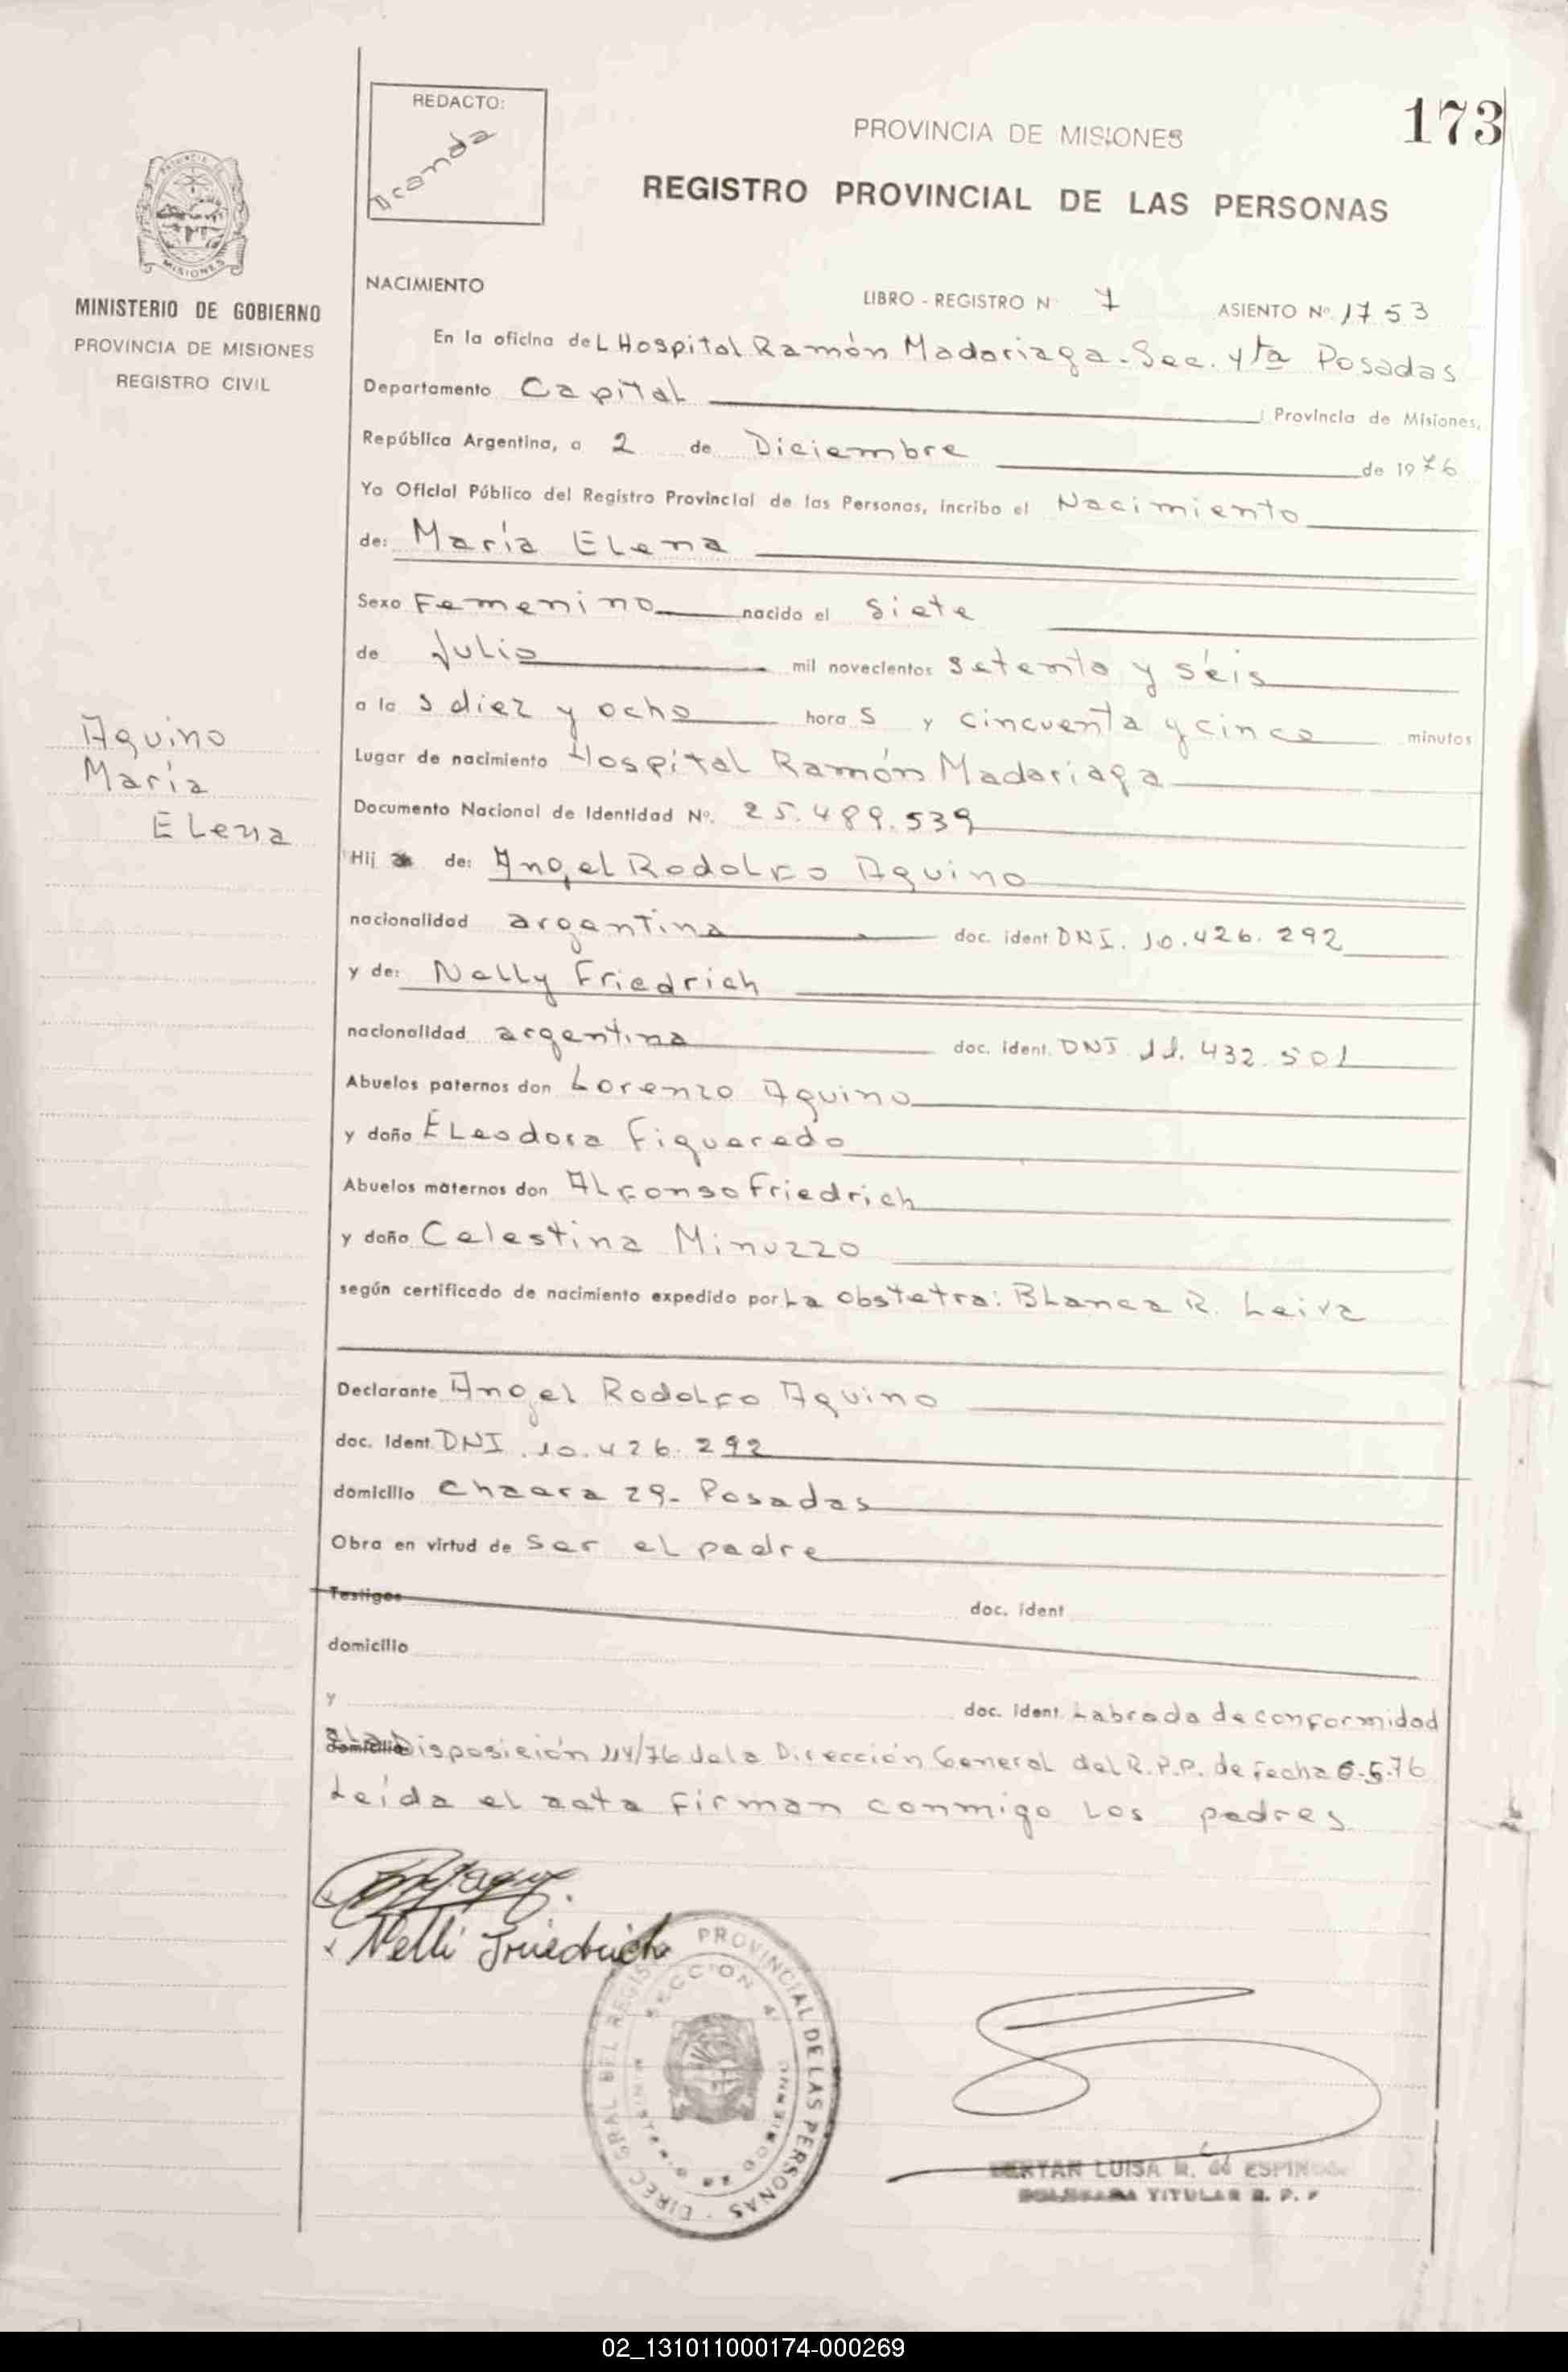 173
REDACTO:
PROVINCIA DE MISIONES
REGISTRO PROVINCIAL DE LAS PERSONAS
MISIONES
MINISTERIO DE GOBIERNO
PROVINCIA DE MISIONES
REGISTRO CIVIL
NACIMIENTO
LIBRO - REGISTRO N 7 ASIENTO Nº 1753
En la oficina del Hospital Ramón Madariaga - Sec. 4ta Posadas
Departamento Capital ; Provincia de Misiones,
República Argentina, a 2 de Diciembre de 1976
Yo Oficial Público del Registro Provincial de las Personas, incribo el Nacimiento
de: María Elena
Sexo Femenino nacido el siete
de Julio mil novecientos setenta y séis
a las diez y ocho horas y cincuenta y cinco minutos
Lugar de nacimiento Hospital Ramón Madariaga
Documento Nacional de Identidad Nº. 25.489.539
Aquino
María
Elena
Hija de: Angel Rodolfo Aquino
nacionalidad argentina doc. ident DNI. 10.426.292
y de: Nelly Friedrich
nacionalidad argentina doc. ident. DNI 11.432.501
Abuelos paternos don Lorenzo Aquino
y doña Eleodora Figueredo
Abuelos maternos don Alfonso Friedrich
y doña Celestina Minuzzo
según certificado de nacimiento expedido por La obstetra: Blanca R. Leiva
Declarante Angel Rodolfo Aquino
doc. Ident. DNI. 10.426.292
domicilio Chacra 29- Posadas
Obra en virtud de ser el padre
Testigos doc. ident
domicilio
y doc. ident. Labrada de conformidad
domicilio a la Disposición 114/76 de la Dirección General del R.P.P. de fecha 6-5-76
Leída el acta firman conmigo los padres
Nelli Friedrich
DIREC GRAL DEL REGIST PROVINCIAL DE LAS PERSONAS
SECCION 4ª
MINISTERIO DE GOBIERNO
LUISA R. de ESPIN
TITULAR R. P. P
02_131011000174-000269